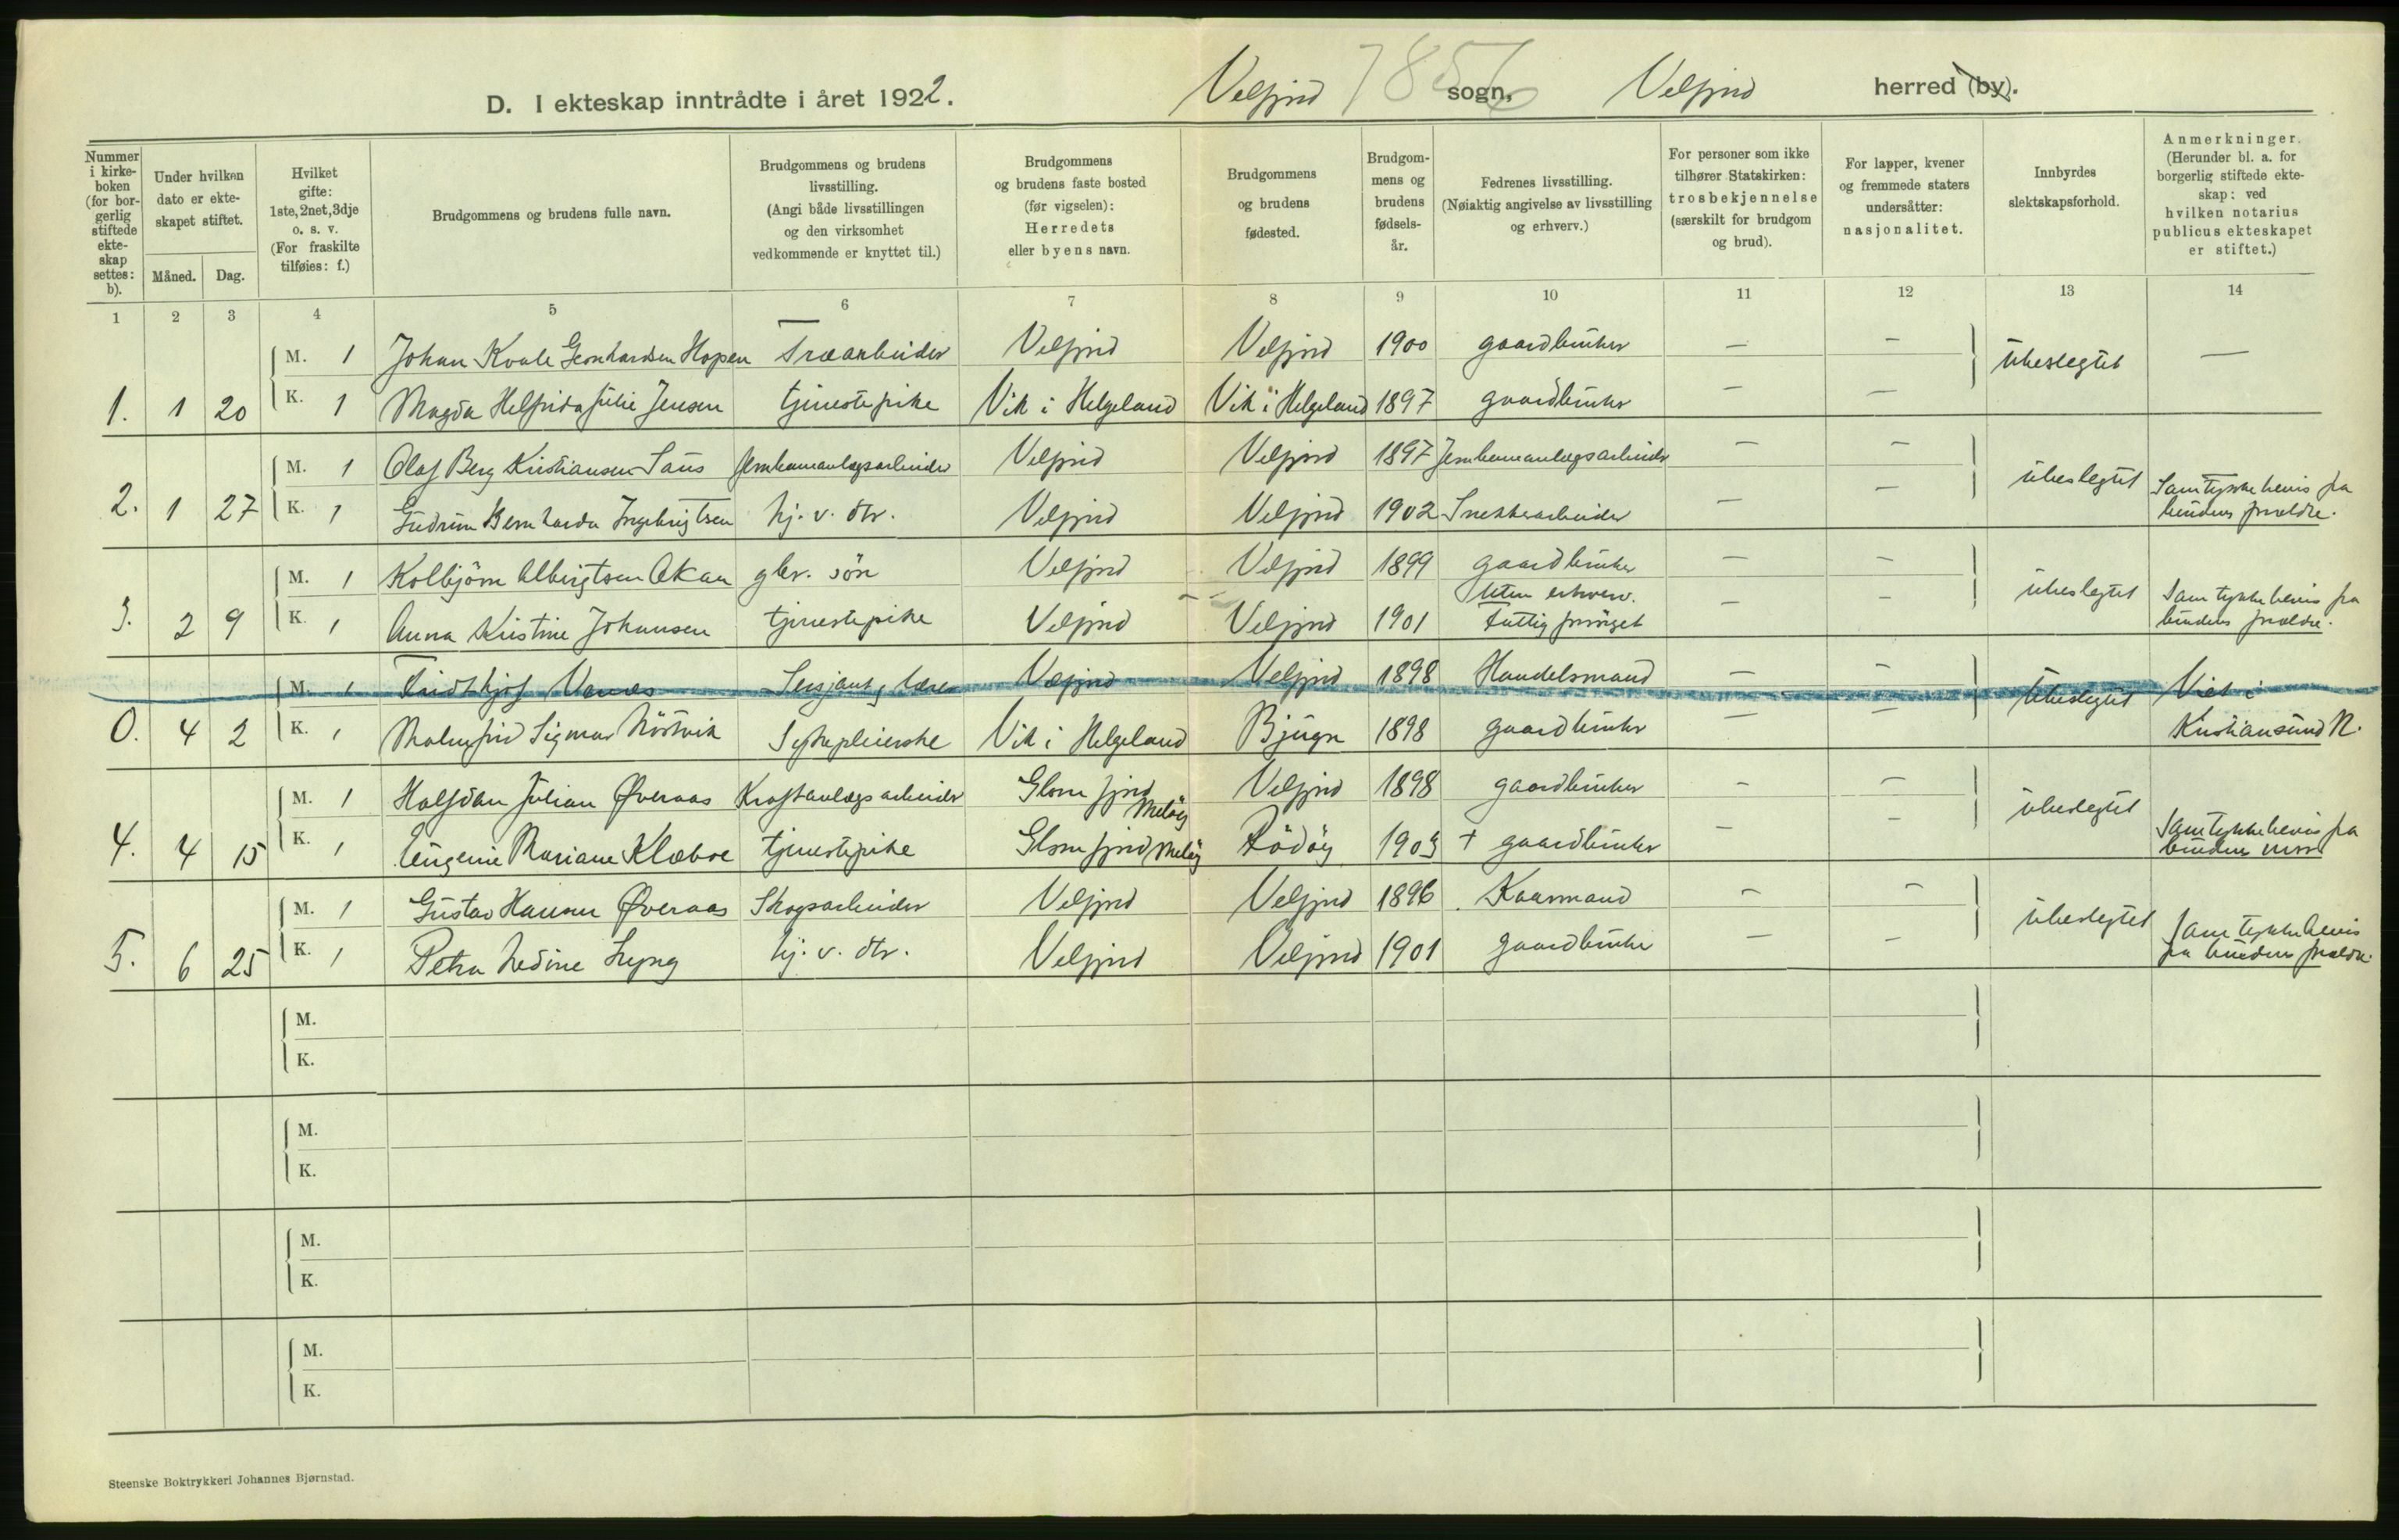 D. I ekteskap inntrådte i året 1922. Velfjord sogn. 7856 Velfjord herred (by).
Nummer i kirkeboken (for borgerlig stiftede ekteskap settes: b).
Under hvilken dato er ekteskapet stiftet.
Måned. Dag.
Hvilket gifte: 1ste, 2net, 3dje o. s. v. (For fraskilte tilføies: f.)
Brudgommens og brudens fulle navn.
Brudgommens og brudens livsstilling. (Angi både livsstillingen og den virksomhet vedkommende er knyttet til.)
Brudgommens og brudens faste bosted (før vigselen): Herredets eller byens navn.
Brudgommens og brudens fødested.
Brudgommens og brudens fødselsår.
Fedrenes livsstilling. (Nøiaktig angivelse av livsstilling og erhverv.)
For personer som ikke tilhører Statskirken: trosbekjennelse (særskilt for brudgom og brud).
For lapper, kvener og fremmede staters undersåtter: nasjonalitet.
Innbyrdes slektskapsforhold.
Anmerkninger. (Herunder bl. a. for borgerlig stiftede ekteskap: ved hvilken notarius publicus ekteskapet er stiftet.)
1 2 3 4 5 6 7 8 9 10 11 12 13 14
M. 1 Johan Kvale Gerhardsen Hopen Træarbeider Velfjord Velfjord 1900 gaardbruker — — Ubeslegtet —
1. 1 20 K. 1 Magda Helfrida Julie Jensen tjenestepike Vik i Helgeland Vik i Helgeland 1897 gaardbruker — —
M. 1 Olaf Berg Kristiansen Saus Jernbaneanlægsarbeider Velfjord Velfjord 1897 Jernbaneanlægsarbeider — — ubeslegtet Samtykkebevis fra
2. 1 27 K. 1 Gudrun Bernharda Ingebrigtsen hj. v. dtr. Velfjord Velfjord 1902 Snekkerarbeider — — brudens forældre.
M. 1 Kolbjörn Albrigtsen Akan gbr. sön Velfjord Velfjord 1899 gaardbruker — — ubeslegtet Samtykkebevis fra
Uten erhverv.
3. 2 9 K. 1 Anna Kristine Johansen tjenestepike Velfjord Velfjord 1901 Fattigforsörget — — brudens forældre.
M. 1 Fridthjof Vennes Sersjant, lærer Velfjord Velfjord 1898 Handelsmand — — Ubeslegtet Viet i
0. 4 2 K. 1 Malmfrid Sigmar Sykepleierske Vik i Helgeland Bjugn 1898 gaardbruker — — Kristiansund N.
M. 1 Halfdan Julian Øveraas Kraftanlægsarbeider Glomfjord Meløy Velfjord 1898 gaardbruker — — ubeslegtet Samtykkebevis fra
4. 4 15 K. 1 Eugenie Mariane Klæboe tjenestepike Glomfjord, Meløy Rödöy 1903 + gaardbruker — — brudens mor
M. 1 Gustav Hansen Øveraas Skogsarbeider Velfjord Velfjord 1896 Kaarmand — — ubeslegtet Samtykkebevis
5. 6 25 K. 1 Petra Nedine Lyng hj. v. dtr. Velfjord Velfjord 1901 gaardbruker — — fra brudens forældre.
M.
K.
M.
K.
M.
K.
M.
K.
Steenske Boktrykkeri Johannes Bjørnstad.